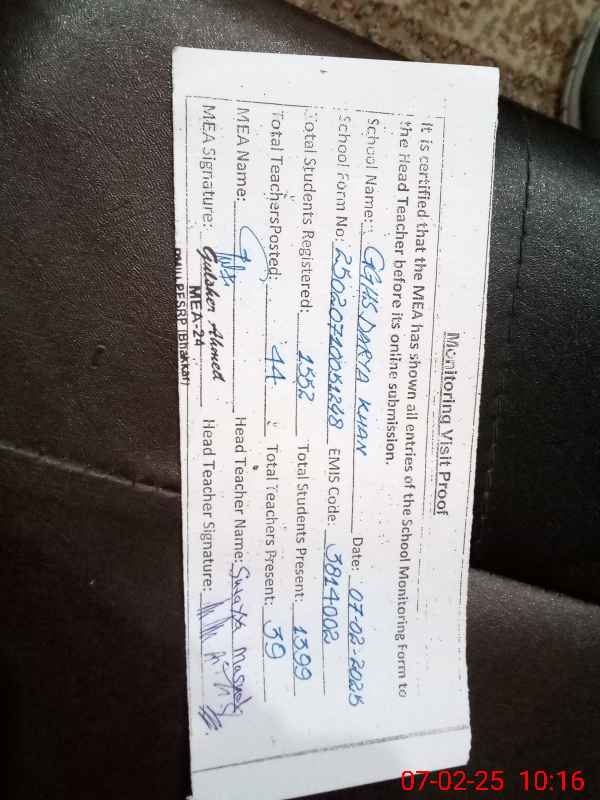 Monitoring Visit Proof
It is certified that the MEA has shown all entries of the School Monitoring Form to
the Head Teacher before its online submission.
School Name: GGHS DARYA KHAN Date: 07-02-2025
School Form No: EMIS Code: 3814002
Total Students Registered: 1552 Total Students Present: 1399
Total Teachers Posted: 44 Total Teachers Present: 39
MEA Name: Head Teacher Name:
MEA Signature: Gulsher Ahmed Head Teacher Signature:
MEA-24
PESRP (Bhakkar)
07-02-25 10:16